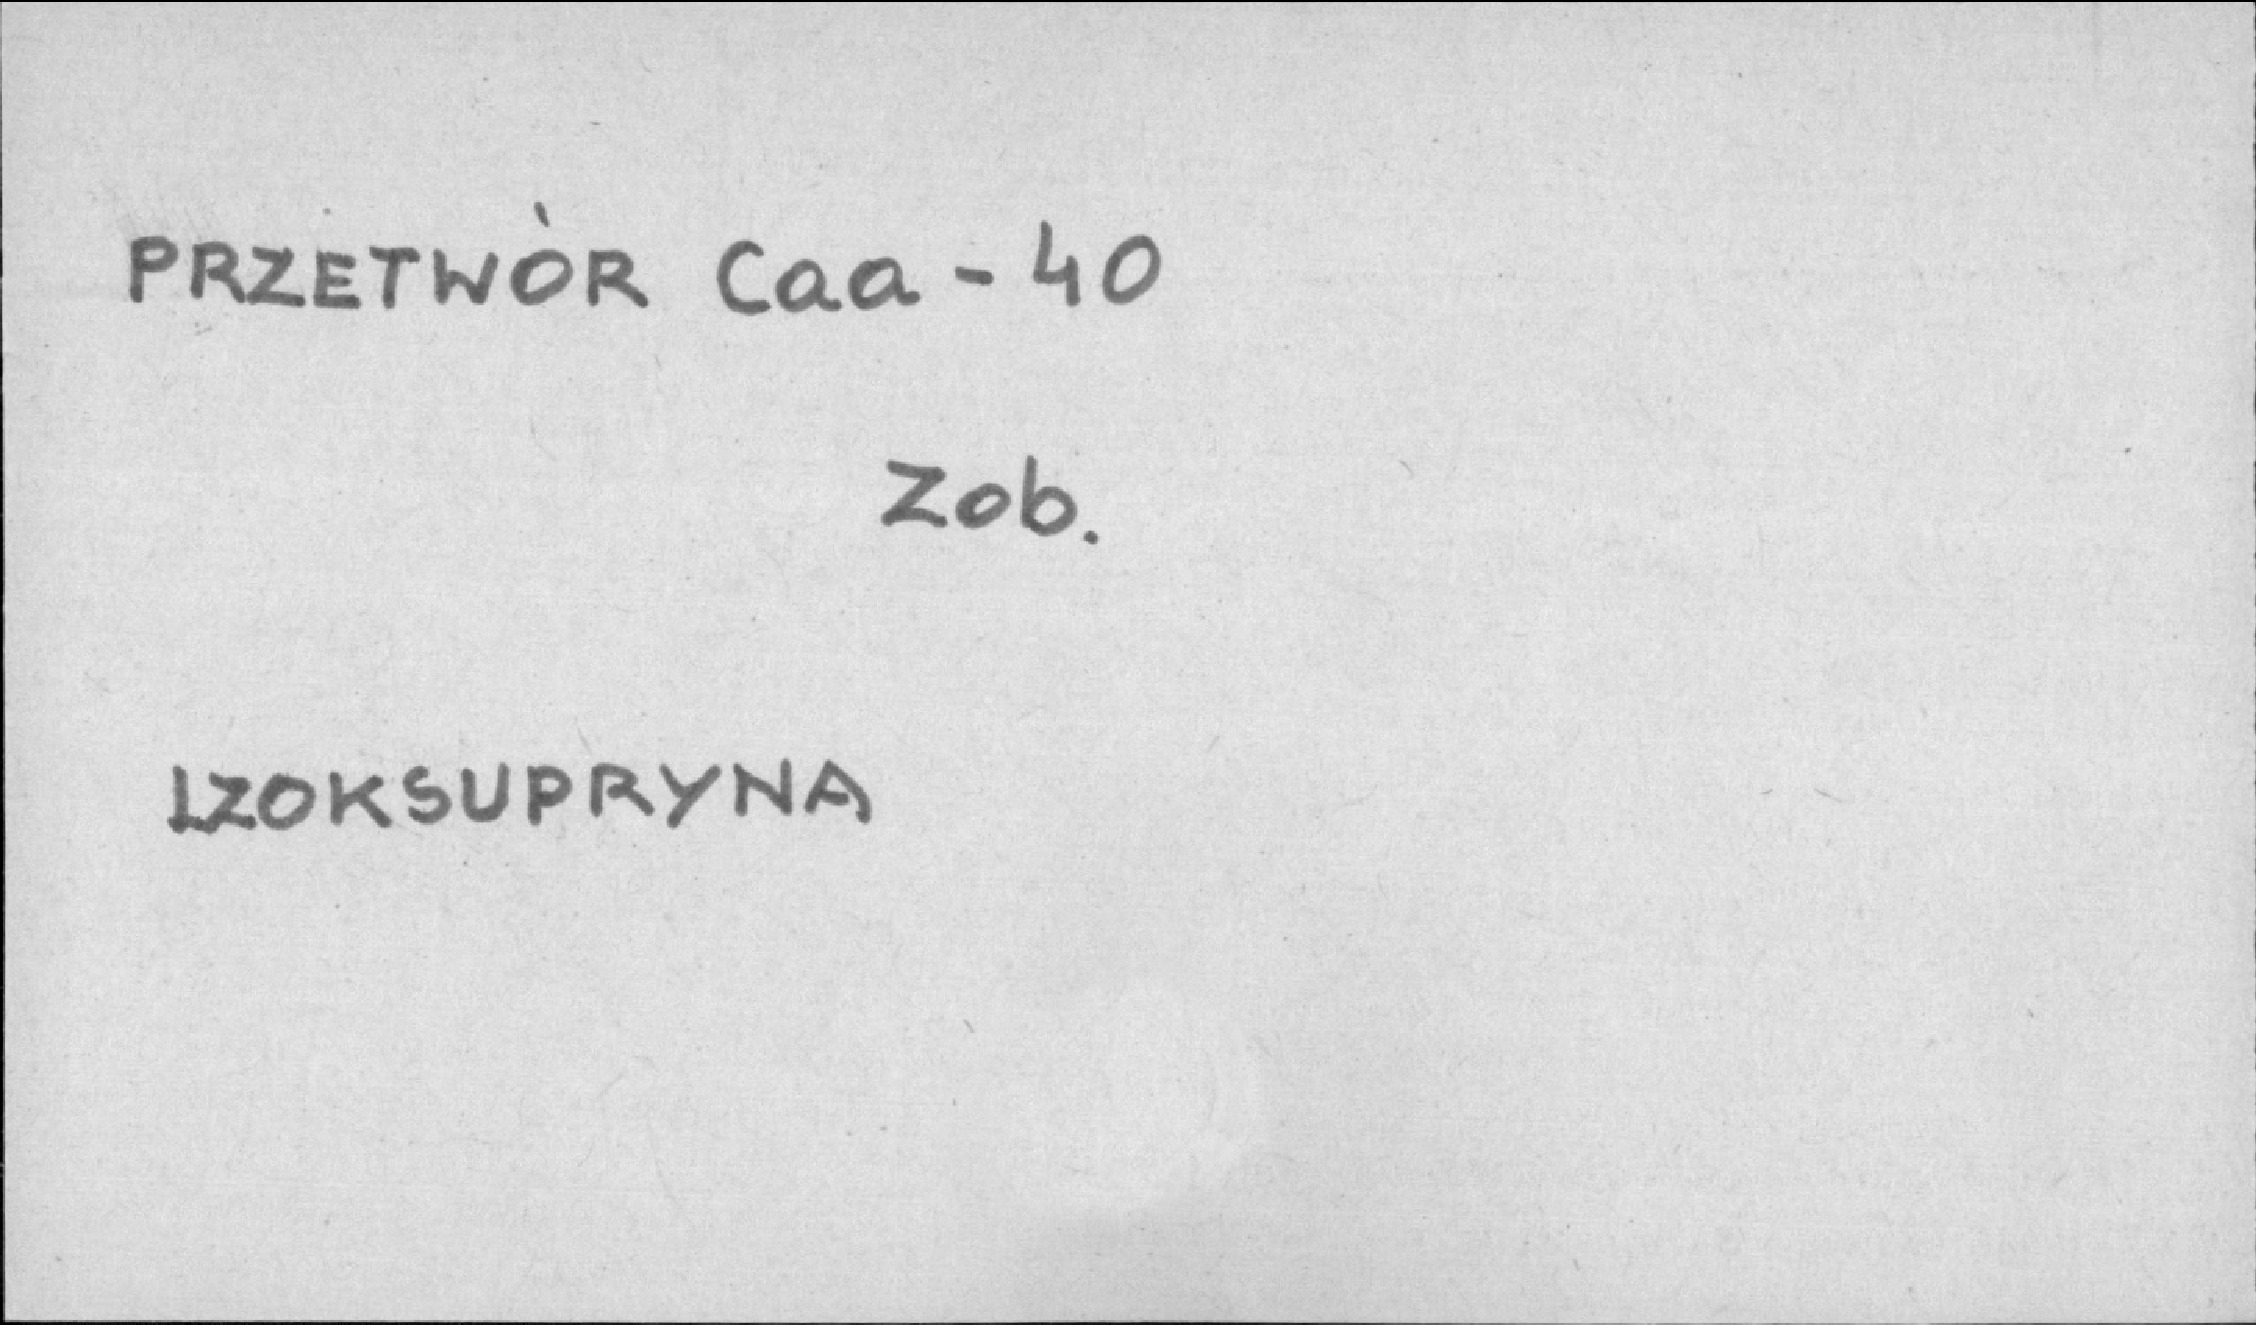 PRZETWÓR Caa - 40
Zob.
IZOKSUPRYNA